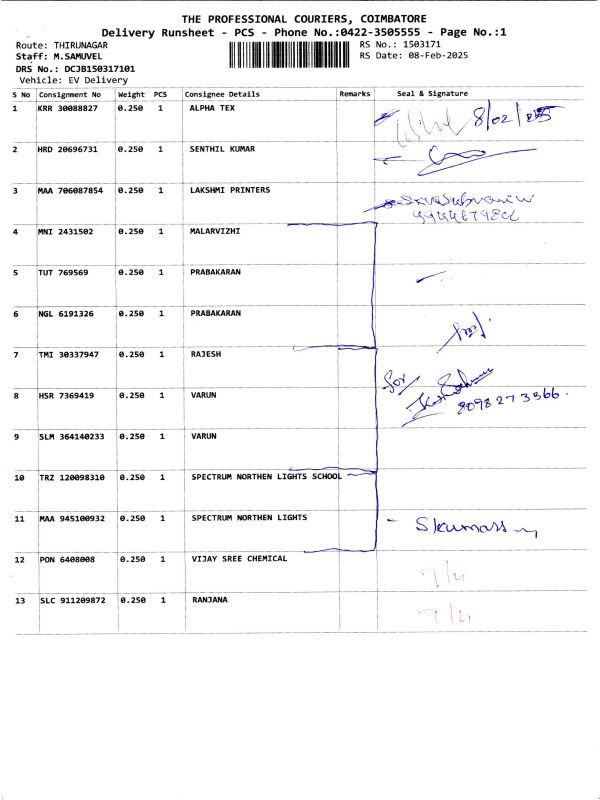 THE PROFESSIONAL COURIERS, COIMBATORE
Delivery Runsheet - PCS - Phone No.:0422-3505555 - Page No.:1
Route: THIRUNAGAR RS No.: 1503171
Staff: M.SAMUVEL RS Date: 08-Feb-2025
DRS No.: DCJB150317101
Vehicle: EV Delivery
S No Consignment No Weight PCS Consignee Details Remarks Seal & Signature
1 KRR 30088827 0.250 1 ALPHA TEX 8/02/
2 HRD 20696731 0.250 1 SENTHIL KUMAR
3 MAA 706087854 0.250 1 LAKSHMI PRINTERS
4 MNI 2431502 0.250 1 MALARVIZHI
5 TUT 769569 0.250 1 PRABAKARAN
6 NGL 6191326 0.250 1 PRABAKARAN
7 TMI 30337947 0.250 1 RAJESH for
8 HSR 7369419 0.250 1 VARUN 8098273366.
9 SLM 364140233 0.250 1 VARUN
10 TRZ 120098310 0.250 1 SPECTRUM NORTHEN LIGHTS SCHOOL
11 MAA 945100932 0.250 1 SPECTRUM NORTHEN LIGHTS
12 PON 6408008 0.250 1 VIJAY SREE CHEMICAL
13 SLC 911209872 0.250 1 RANJANA